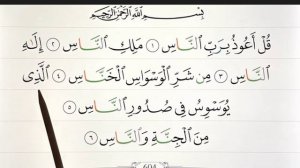 بِسْمِ ٱللَّهِ ٱلرَّحْمَٰنِ ٱلرَّحِيمِ
قُلْ أَعُوذُ بِرَبِّ ٱلنَّاسِ ١ مَلِكِ ٱلنَّاسِ ٢ إِلَٰهِ
ٱلنَّاسِ ٣ مِن شَرِّ ٱلْوَسْوَاسِ ٱلْخَنَّاسِ ٤ ٱلَّذِى
يُوَسْوِسُ فِى صُدُورِ ٱلنَّاسِ ٥
مِنَ ٱلْجِنَّةِ وَٱلنَّاسِ ٦
604